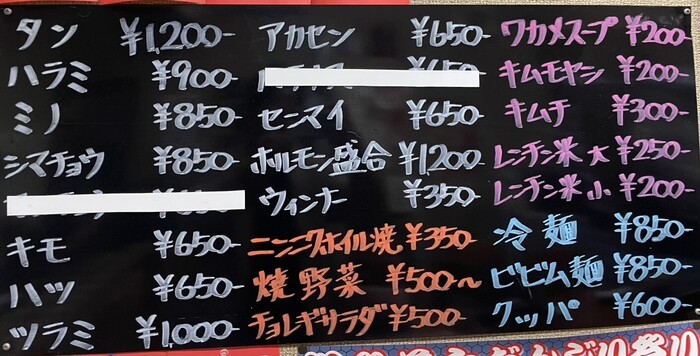 タン ¥1,200-
ハラミ ¥900-
ミノ ¥850-
シマチョウ ¥850-
キモ ¥650-
ハツ ¥650-
ツラミ ¥1,000-
アカセン ¥650-
センマイ ¥650-
ホルモン盛合 ¥1,200-
ウィンナー ¥350-
ニンニクホイル焼 ¥350-
焼野菜 ¥500~
チョレギサラダ ¥500-
ワカメスープ ¥200-
キムモヤシ ¥200-
キムチ ¥300-
レンチン米 大 ¥250-
レンチン米 小 ¥200-
冷麺 ¥850-
ビビム麺 ¥850-
クッパ ¥600-